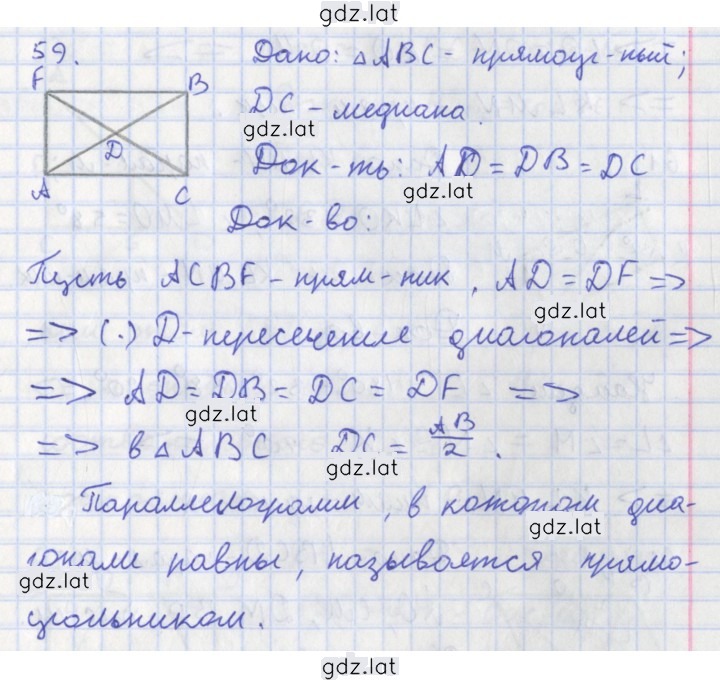 gdz.lat
59.
Дано: △ABC - прямоуг-ный;
F B
DC - медиана.
gdz.lat
D
Док-ть: AD = DB = DC
gdz.lat
A C
Док-во:
Пусть ACBF - прям-ник, AD = DF =>
gdz.lat
=> (.) D - пересечение диагоналей =>
=> AD = DB = DC = DF =>
gdz.lat
=> в △ABC DC = AB/2.
gdz.lat
Параллелограмм, в котором диа-
gdz.lat
гонали равны, называется прямо-
gdz.lat
угольником.
gdz.lat